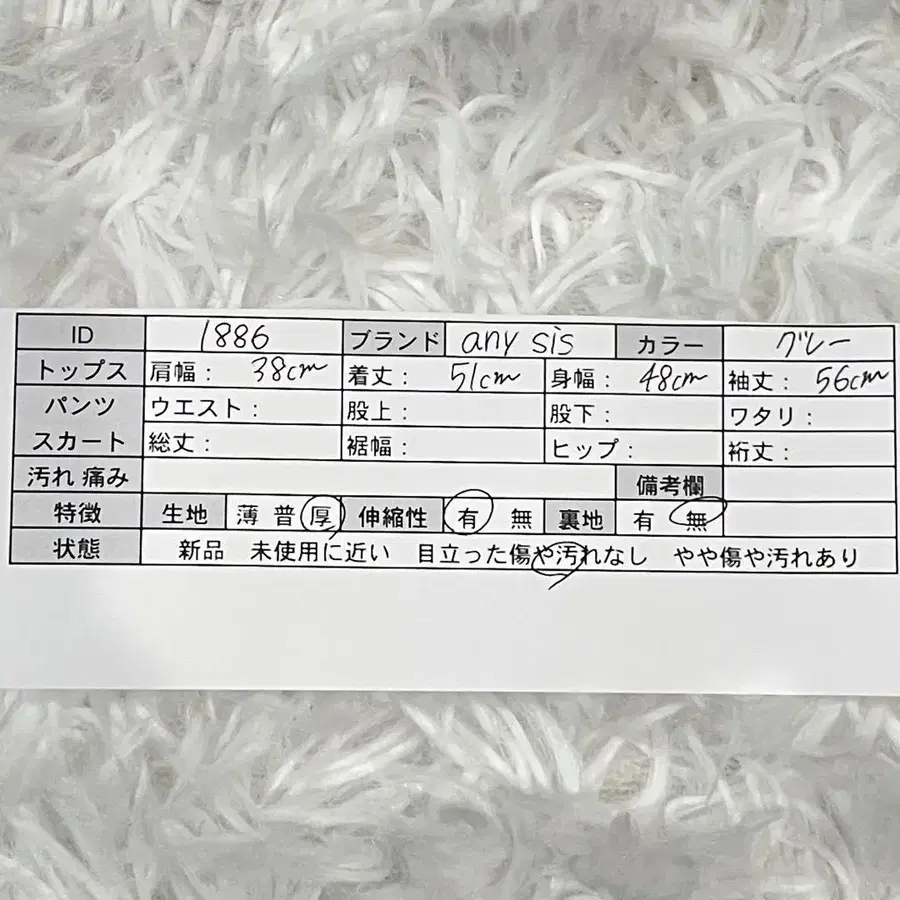 ID 1886 ブランド any sis カラー グレー
トップス 肩幅： 38cm 着丈： 51cm 身幅： 48cm 袖丈： 56cm
パンツ ウエスト： 股上： 股下： ワタリ：
スカート 総丈： 裾幅： ヒップ： 裄丈：
汚れ 痛み 備考欄
特徴 生地 薄 普 厚 伸縮性 有 無 裏地 有 無
状態 新品 未使用に近い 目立った傷や汚れなし やや傷や汚れあり